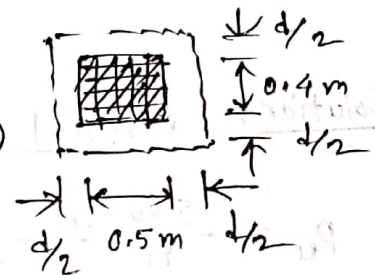 d/2
0.4 m
d/2
d/2 0.5 m d/2